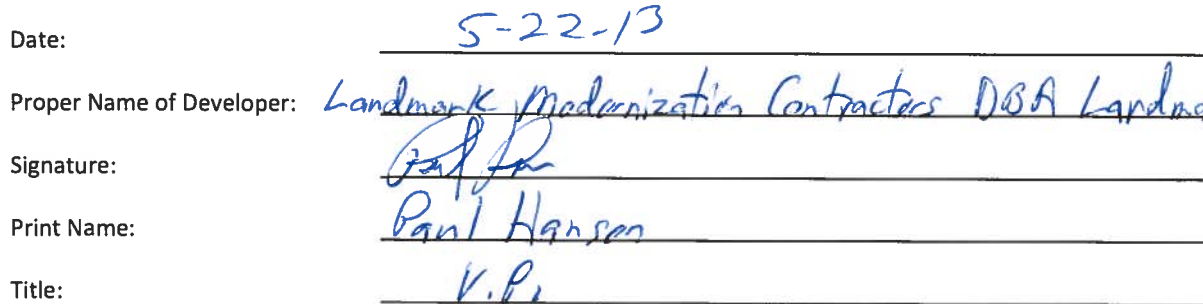 Date: 5-22-13
Proper Name of Developer: Landmark Modernization Contractors DBA Landma
Signature:
Print Name: Paul Hanson
Title: V.P.